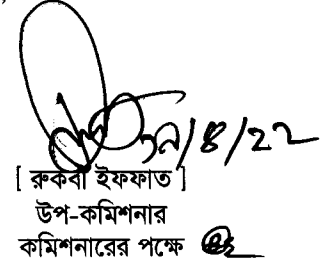 [ রুকবা ইফফাত ]
উপ-কমিশনার
কমিশনারের পক্ষে